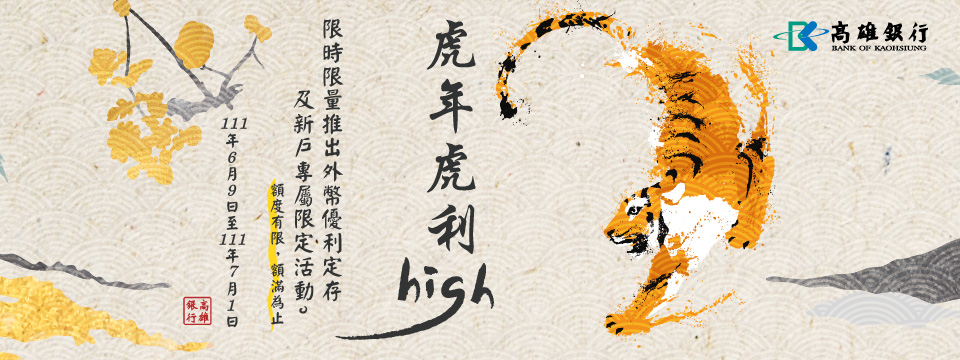 高雄銀行
BANK OF KAOHSIUNG
虎年虎利high
限時限量推出外幣優利定存
及新戶專屬限定活動。
額度有限，額滿為止
111年6月9日至111年7月1日
高雄
銀行